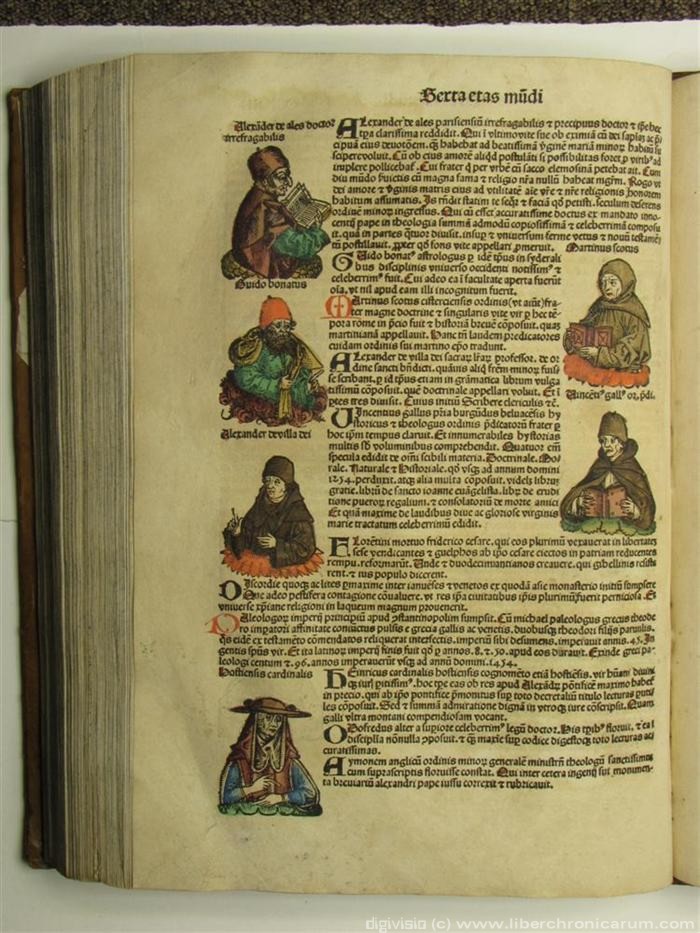 Sexta etas mũdi
Alexãder de ales doctor
irrefragabilis
Alexander de ales parisiensiũ irrefragabilis & precipuus doctor &
clarissima reddidit. Qui ĩ vltimo vite sue ob eximiã cũ dei
deuotõem. q̃ habebat ad beatissimã ꝟginẽ mariã minoꝝ habitũ
suscipere voluit. Cũ ob eius amorẽ aliqd postulãti si possibilitas foret
implere pollicebať. Cui frater q per vrbẽ cũ sacco elemosinã petebat ait. Cum
diu mũdo fama & religio nr̃a nullũ habeat mgr̃m. Rogo
dei amore & ꝟginis matris eius ad vtilitatẽ aĩe vr̃e & nr̃e religionis honorem
habitum assumatis. Is rñdit statim te seqr & faciã qđ petisti. seculum deserens
ordinẽ minoꝝ ingressus. Qui cũ esset accuratissime doctus ex mandato inno
centij pape in theologia summã admodũ copiosissimã & celeberrimã composu
it. quã in partes q̃tuor diuisit. insuꝑ & vniuersum ferme vetus & nouũ
postillauit. fons vite appellari ꝓmeruit.
Martinus scotus
Guido bonatus
Guido bonatꝰ astrologus ꝑ idẽ tp̃us in syderali
bus disciplinis vniuerso occidenti notissimꝰ &
celeberrimꝰ fuit. Cui adeo ea ĩ facultate aperta fuerũt
oĩa. vt nil apud eam illi incognitum fuerit.
Martinus scotus cisterciensis ordinis (vt aiũt) fra
ter magne doctrine & singularis vite vir ꝑ hec tẽ
pora rome in p̃cio fuit & historiã breuẽ cõposuit. quaȝ
martinianã appellauit. Hanc tñ laudem predicatores
cuidam ordinis sui martino tradunt.
Vincẽtiꝰ gallꝰ or. p̃di.
Alexander de villa dei
Alexander de villa dei professor. de or
dine sancti bñdicti. quãuis aliq̃ frẽm minoꝝ fuis
se scribant. ꝑ id tp̃us etiam in grãmatica librum vulga
tissimũ cõposuit. quẽ doctrinale appellari voluit. Et ĩ
ptes tres diuisit. Cuius initiũ Scribere clericalis &c̃.
Vincentius gallus pr̃ia burgũdus beluacẽsis hy
storicus & theologus ordinis p̃dicatoꝝ frater ꝑ
hoc ip̃m tempus claruit. Et innumerabiles hystorias
multis voluminibus comprehendit. Quatuor em̃
specula edidit de om̃i scibili materia. Doctrinale. Mo
rale. Naturale & Historiale. qđ vsq̃ ad annum domini
1254. perduxit. atq̃ alia multa cõposuit. videlȝ librũ
gratie. librũ de sancto ioanne euãgelista. libꝝ de erudi
tione pueroꝝ regalium. & consolatoriũ de morte amici
Et quã maxime de laudibus diue ac gloriose virginis
marie tractatum celeberrimũ edidit.
Florẽtini mortuo friderico cesare. qui eos plurimũ vexauerat in libertateȝ
sese vendicantes & guelphos ab ip̃o cesare eiectos in patriam reducentes
rempu. reformarũt. Unde & duodecimuiros creauere. qui gibellinis resiste
rent. & ius populo dicerent.
Discordie quoq̃ ac lites ꝑmaxime inter ianuẽses & venetos ex quodã asie monasterio initiũ sumpsere
Que adeo pestifera contagione cõualuere. vt res ip̃a ciuitatibus ip̃is plurimũ fuerit perniciosa. Et
vniuerse xp̃iane religioni in laqueum magnum prouenerit.
Paleologoꝝ imperij principiũ apud 9stantinopolim sumpsit. Cũ michael paleologus grecus theodo
ro impatori affinitate coniũctus pulsis e grecia gallis ac venetis. duobusq̃ theodori filijs paruulis.
q̃s eidẽ ex testamẽto cõmendatos reliquerat interfectis. imperiũ sibi desumens. imperauit annis. 35. In
gentis sp̃us vir. Et ita latinoꝝ imperij finis fuit qđ ꝑ annos. 8. & .50. apud eos durauit. Exinde greci pa
leologi centum & .96. annos imperauerũt vsq̃ ad annũ domini. 1454.
Hostiensis cardinalis
Heinricus cardinalis hostiensis cognomẽto etiã hostiẽsis. vir hũani diuini
q̃ iuris ꝑitissimꝰ. hoc tꝑe eas ob res apud Alexãdꝝ põtificẽ maximo habetˀ
in precio. qui ab ip̃o pontifice p̃monitus suꝑ toto decretaliũ titulo lecturas ꝑuti
les cõposuit. Sed & summã admiratione dignã in vtroq̃ iure cõscripsit. Quam
galli vltra montani compendiosam vocant.
Odofredus alter a supiore celeberrimꝰ legũ doctor. His floruit. & ea ĩ
disciplĩa nõnulla 9posuit. & q̃ maxĩe suꝑ codice digestoq̃ toto lecturas ac
curatissimas.
Aymonem anglicũ ordinis minoꝝ generalẽ ministrũ theologũ sanctissimũ
cum suprascriptis floruisse constat. Qui inter cetera ingenij sui monumen
ta breuiariũ alexandri pape iussu correxit & rubricauit.
digivisio (c) www.liberchronicarum.com